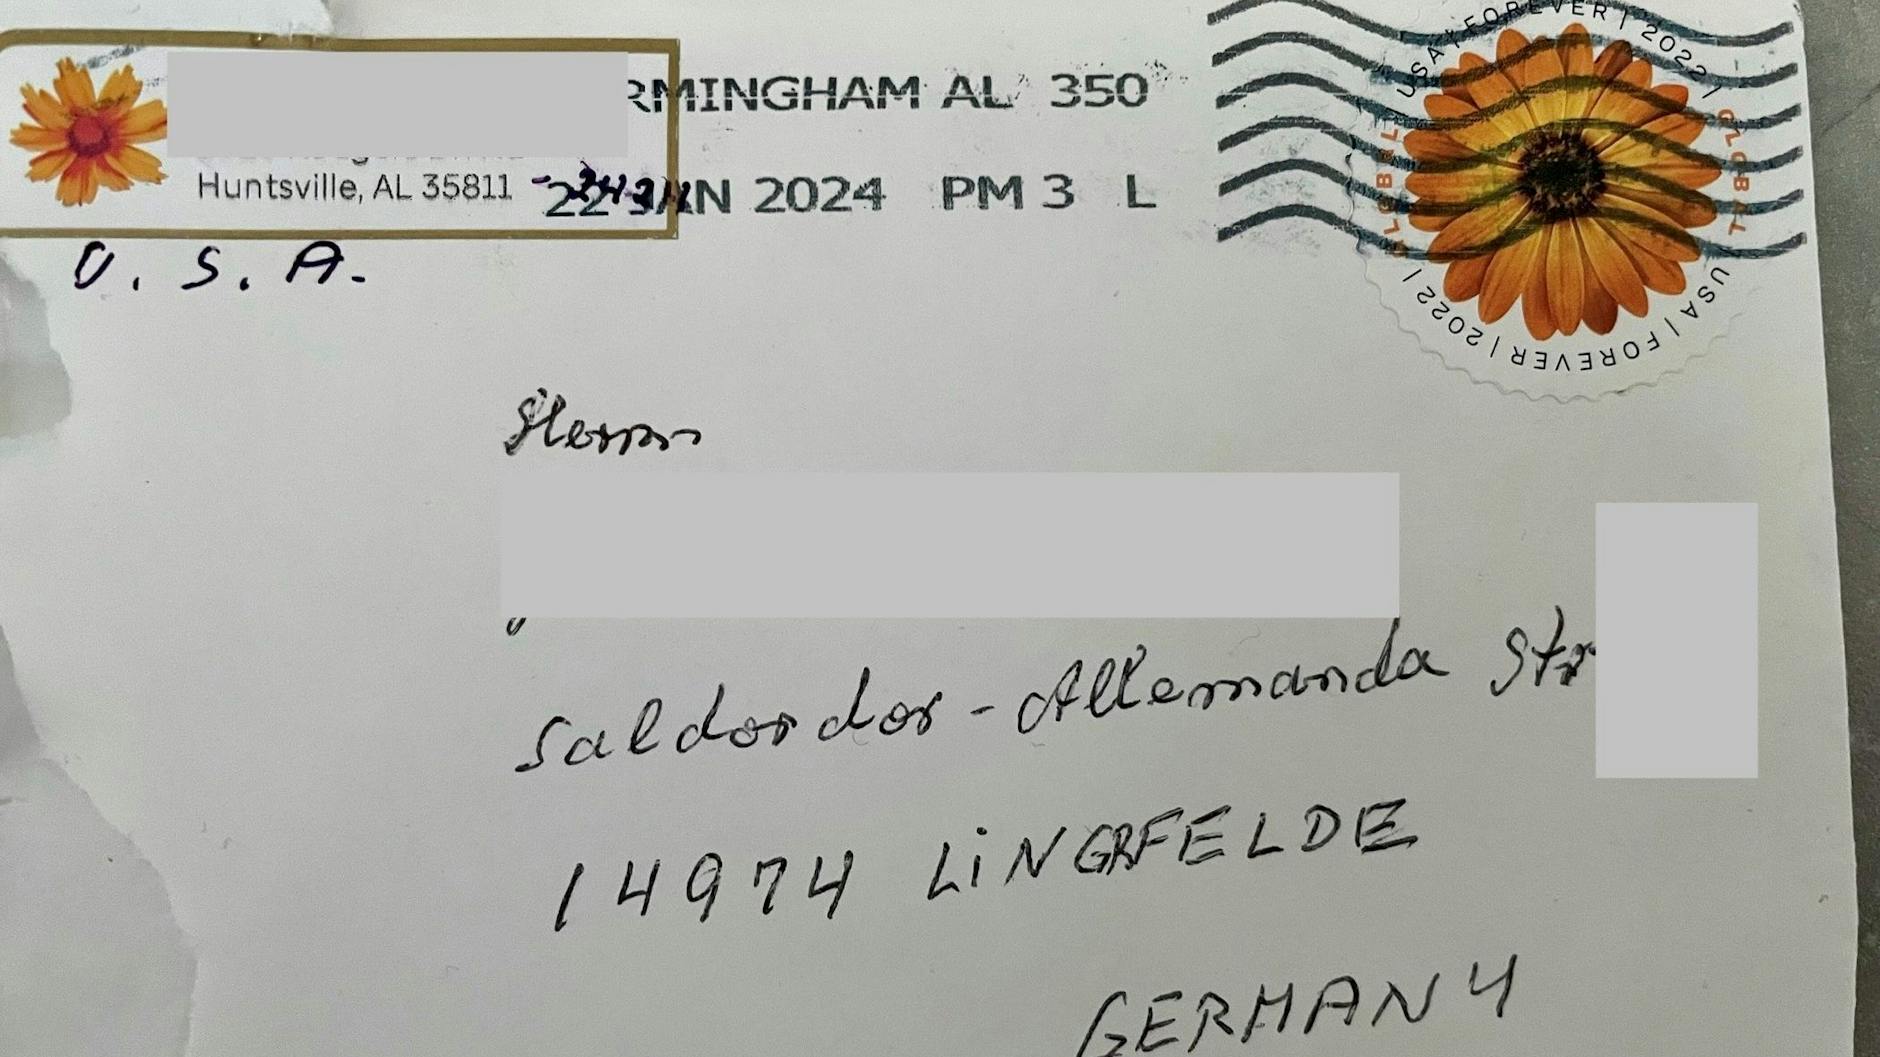 RMINGHAM AL 350
22 JAN 2024 PM 3 L
Huntsville, AL 35811
U. S. A.
USA | FOREVER | 2022 |
GLOBAL
USA | FOREVER | 2022 |
GLOBAL
Herrn
Saldordor-Allemanda Str
14974 LiNGRFELDE
GERMANY